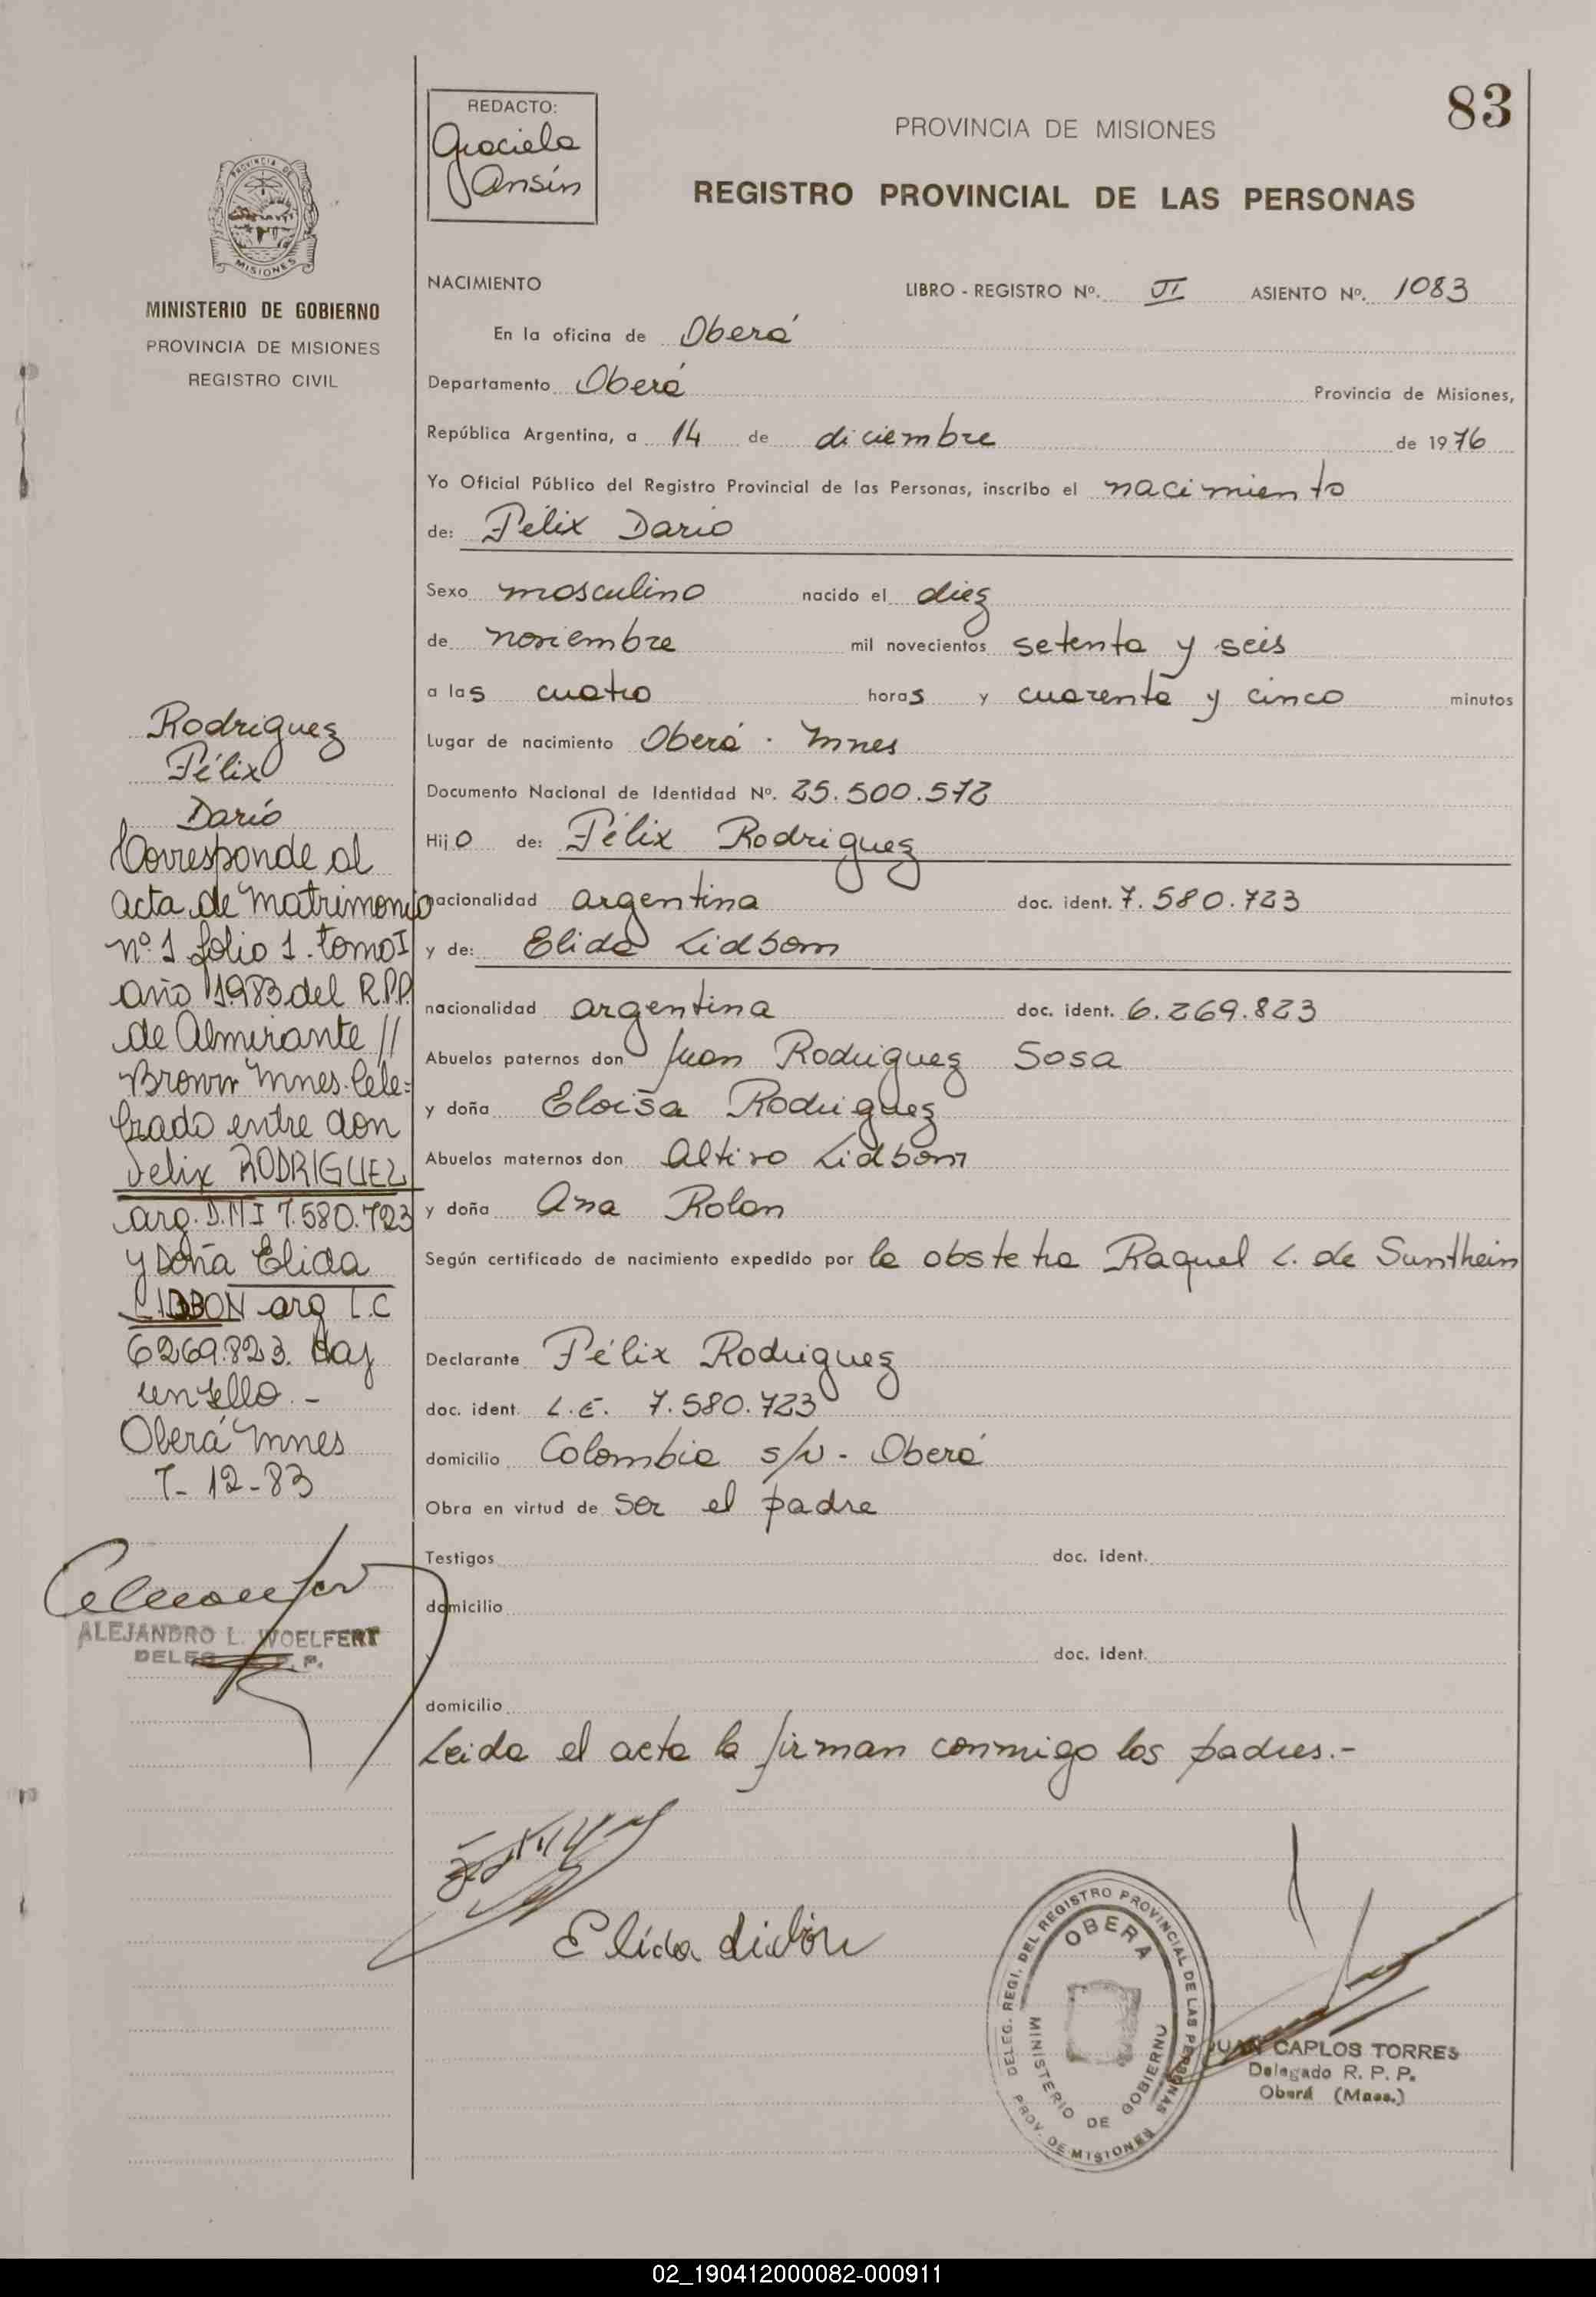 83
REDACTO:
Graciela
Jansín
PROVINCIA DE MISIONES
REGISTRO PROVINCIAL DE LAS PERSONAS
PROVINCIA DE
MISIONES
MINISTERIO DE GOBIERNO
PROVINCIA DE MISIONES
REGISTRO CIVIL
NACIMIENTO
LIBRO - REGISTRO Nº. VI ASIENTO Nº. 1083
En la oficina de Oberá
Departamento Oberá Provincia de Misiones,
República Argentina, a 14 de diciembre de 1976
Yo Oficial Público del Registro Provincial de las Personas, inscribo el nacimiento
de: Félix Dario
Sexo masculino nacido el diez
de noviembre mil novecientos setenta y seis
a las cuatro horas y cuarenta y cinco minutos
Lugar de nacimiento Oberá - Mnes
Documento Nacional de Identidad Nº. 25.500.572
Hijo de: Félix Rodriguez
nacionalidad argentina doc. ident. 7.580.723
y de: Elida Lidbom
nacionalidad argentina doc. ident. 6.269.823
Abuelos paternos don Juan Rodriguez Sosa
y doña Eloisa Rodriguez
Abuelos maternos don Altivo Lidbom
y doña Ana Rolon
Según certificado de nacimiento expedido por la obstetra Raquel L. de Sunthein
Declarante Félix Rodriguez
doc. ident. L.E. 7.580.723
domicilio Colombia s/n - Oberá
Obra en virtud de ser el padre
Testigos doc. ident.
domicilio
y doc. ident.
domicilio
Leida el acta la firman conmigo los padres.-
Rodriguez
Félix
Darío
Corresponde al
acta de matrimonio
nº 1 folio 1. tomo I
año 1983 del R.P.P.
de Almirante //
Brown Mnes. Cele=
brado entre don
Felix RODRIGUEZ
arg. D.N I 7.580.723
y Doña Elida
LIDBON arg L.C
6269.823. Hay
un sello.-
Oberá Mnes
7-12-83
ALEJANDRO L. WOELFERT
DELEG R. P. P.
Elida Lidbón
DELEG. REGI. DEL REGISTRO PROVINCIAL DE LAS PERSONAS
OBERA
MINISTERIO DE GOBIERNO
PROV. DE MISIONES
JUAN CARLOS TORRES
Delegado R. P. P.
Oberá (Mnes.)
02_190412000082-000911